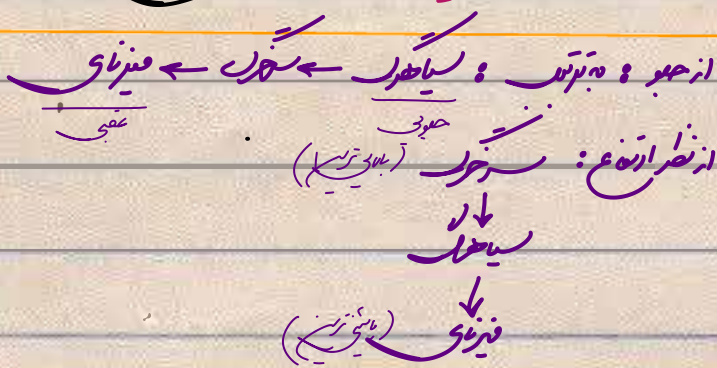 از جلو : به ترتیب : سیاهرگ ← سرخرگ ← میزنای
جلویی عقبی
از نظر ارتفاع : سرخرگ (بالایی ترین)
↓
سیاهرگ
↓
میزنای (پایینی ترین)